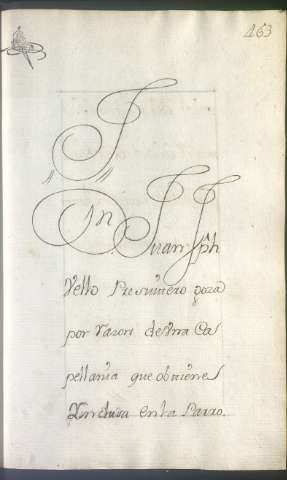 463
J
Dn. Juan Jph
Vello Presvitero goza
por razon de una Ca
pellania que obtiene
Yncluza en la Parro.